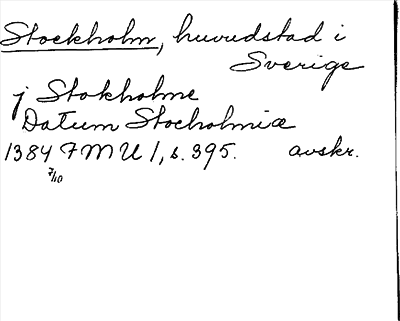 Stockholm, huvudstad i
Sverige
j Stokholme
Datum Stocholmiæ
1384 FMU 1, s. 395. avskr.
7/10